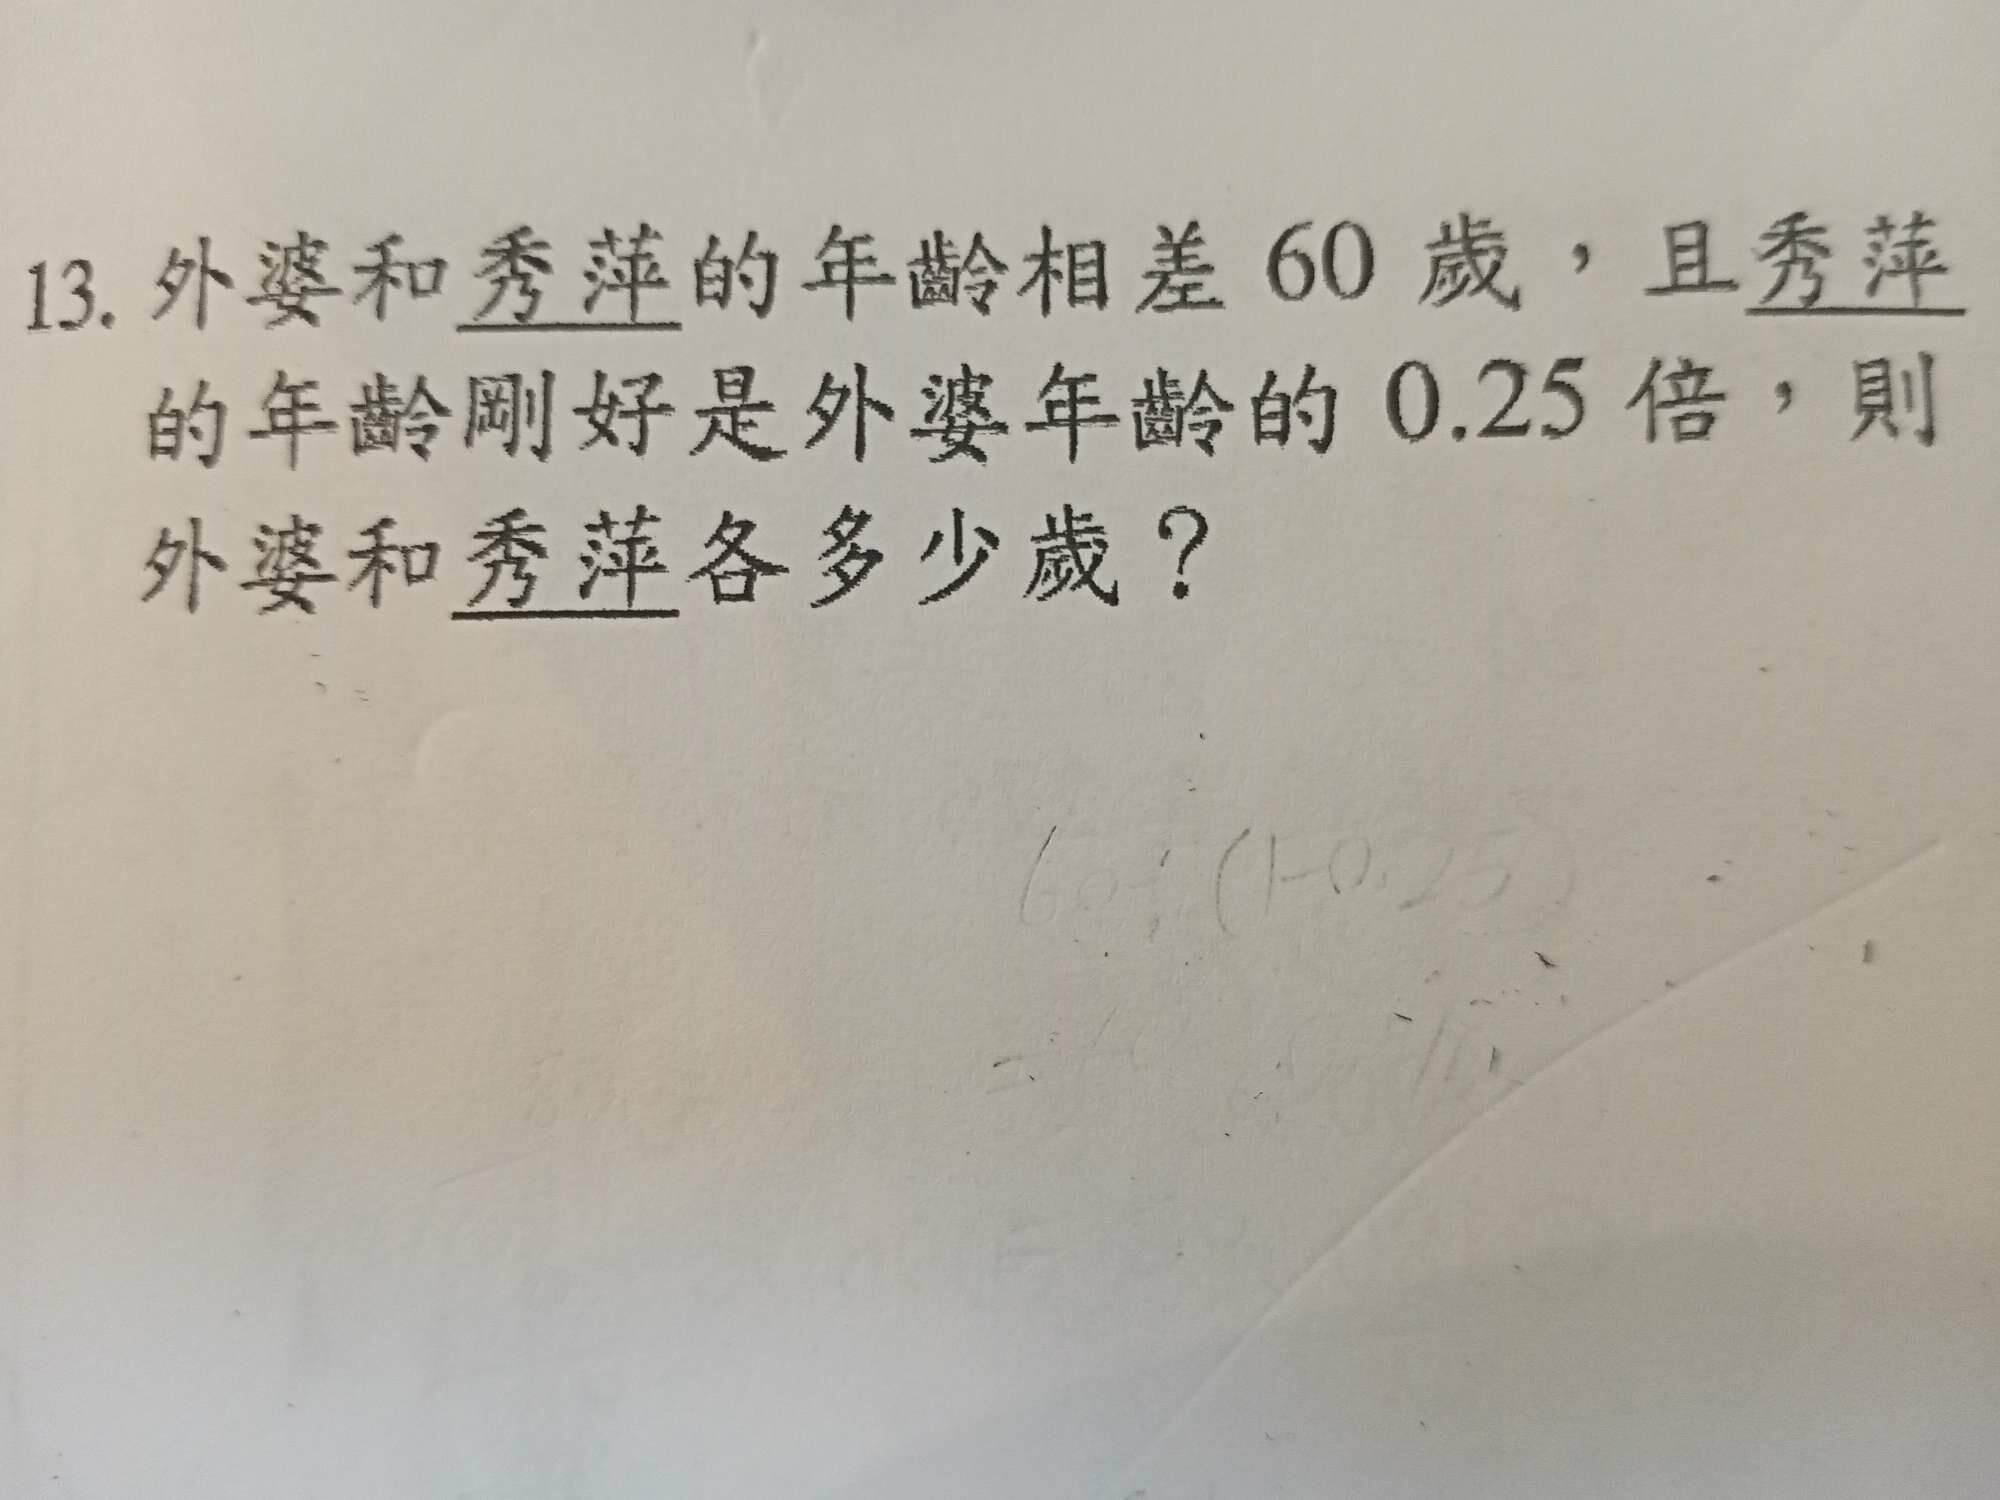 13. 外婆和秀萍的年齡相差 60 歲，且秀萍
的年齡剛好是外婆年齡的 0.25 倍，則
外婆和秀萍各多少歲？
60÷(1-0.25)